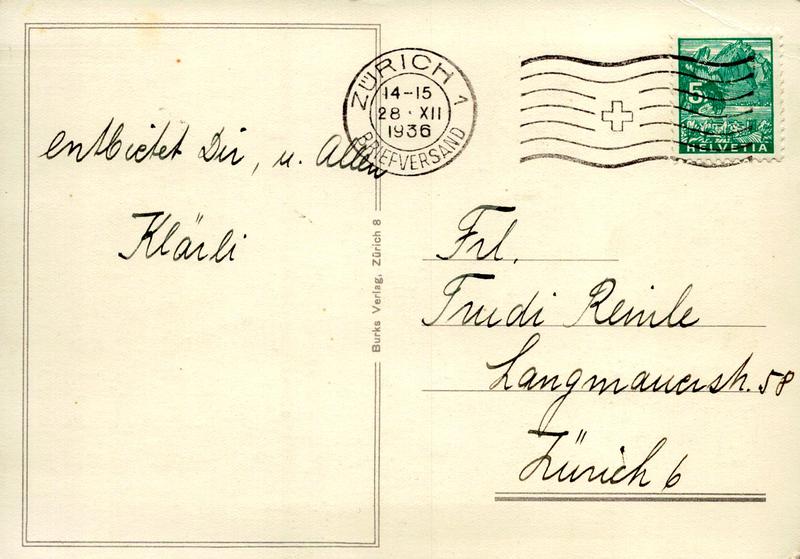 ZÜRICH 1
14-15
28·XII
1936
BRIEFVERSAND
5
HELVETIA
entbietet Dir, u. Allen
Klärli
Burks Verlag, Zürich 8
Frl.
Trudi Reinle
Langmauerstr. 58
Zürich 6